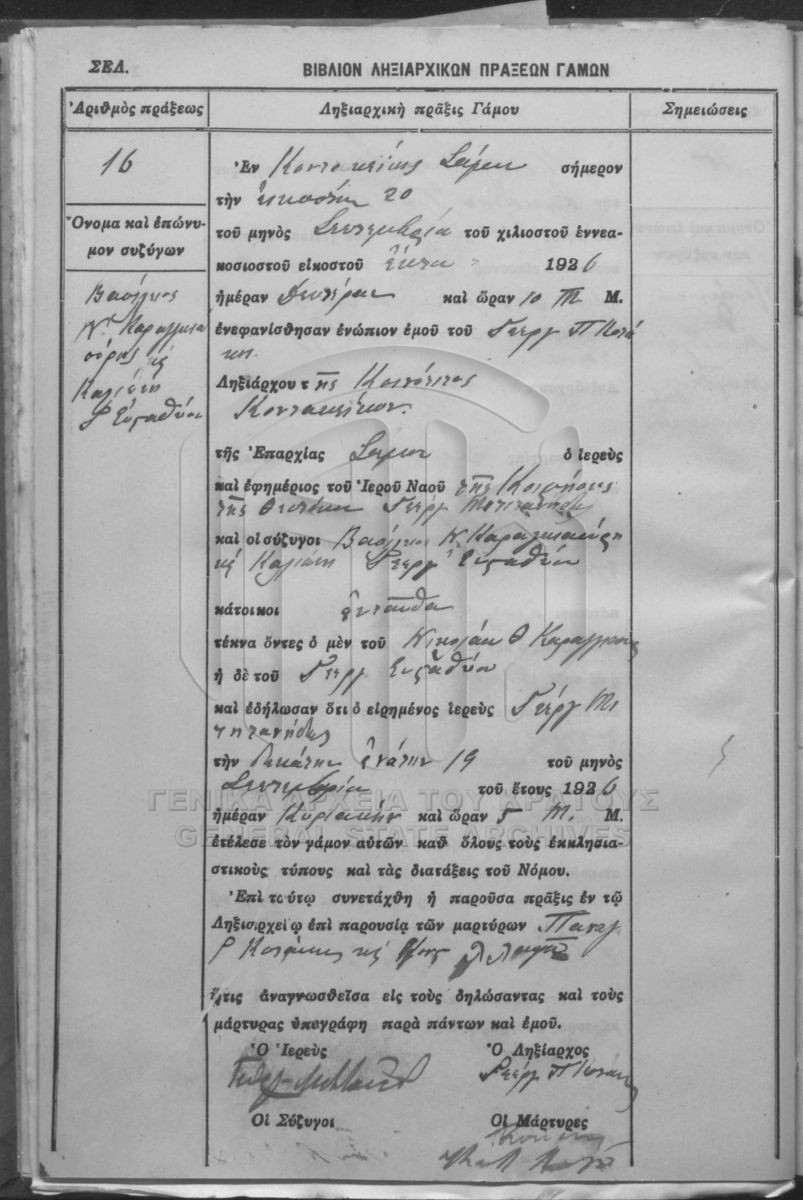 ΣΕΛ.
ΒΙΒΛΙΟΝ ΛΗΞΙΑΡΧΙΚΩΝ ΠΡΑΞΕΩΝ ΓΑΜΩΝ
Ἀριθμὸς πράξεως
Ληξιαρχικὴ πρᾶξις Γάμου
Σημειώσεις
16
Ὄνομα καὶ ἐπώνυ-
μον συζύγων
Βασίλειος
Ν.
Καλιόπη
Γ Εὐσταθίου
Ἐν Κοντακεΐκοις Σάμου σήμερον
τὴν εἰκοστὴν 20
τοῦ μηνὸς Σεπτεμβρίου τοῦ χιλιοστοῦ ἐννεα-
κοσιοστοῦ εἰκοστοῦ ἕκτου 1926
ἡμέραν Δευτέραν καὶ ὥραν 10 Π Μ.
ἐνεφανίσθησαν ἐνώπιον ἐμοῦ τοῦ Γεωργ Π
Ληξιάρχου τῆς Κοινότητος
Κοντακεΐκων
τῆς Ἐπαρχίας Σάμου ὁ ἱερεὺς
καὶ ἐφημέριος τοῦ Ἱεροῦ Ναοῦ τῆς Κοιμήσεως
τῆς Θεοτόκου Γεωργ
καὶ οἱ σύζυγοι Βασίλειος Ν
κὲ Καλιόπη Γεωργ Εὐσταθίου
κάτοικοι ἐνταῦθα
τέκνα ὄντες ὁ μὲν τοῦ Νικολάου Θ
ἡ δὲ τοῦ Γεωργ Εὐσταθίου
καὶ ἐδήλωσαν ὅτι ὁ εἰρημένος ἱερεὺς Γεώργ
τὴν δεκάτην ἐνάτην 19 τοῦ μηνὸς
Σεπτεμβρίου τοῦ ἔτους 1926
ἡμέραν Κυριακὴν καὶ ὥραν 5 Μ. Μ.
ἐτέλεσε τὸν γάμον αὐτῶν καθ ὅλους τοὺς ἐκκλησια-
στικοὺς τύπους καὶ τὰς διατάξεις τοῦ Νόμου.
Ἐπὶ τούτῳ συνετάχθη ἡ παροῦσα πρᾶξις ἐν τῷ
Ληξιαρχείῳ ἐπὶ παρουσίᾳ τῶν μαρτύρων Παναγ
ἥτις ἀναγνωσθεῖσα εἰς τοὺς δηλώσαντας καὶ τοὺς
μάρτυρας ὑπεγράφη παρὰ πάντων καὶ ἐμοῦ.
Ὁ Ἱερεὺς
Ὁ Ληξίαρχος
Γεώργ Π
Οἱ Σύζυγοι
Οἱ Μάρτυρες
ΓΕΝΙΚΑ ΑΡΧΕΙΑ ΤΟΥ ΚΡΑΤΟΥΣ
GENERAL STATE ARCHIVES